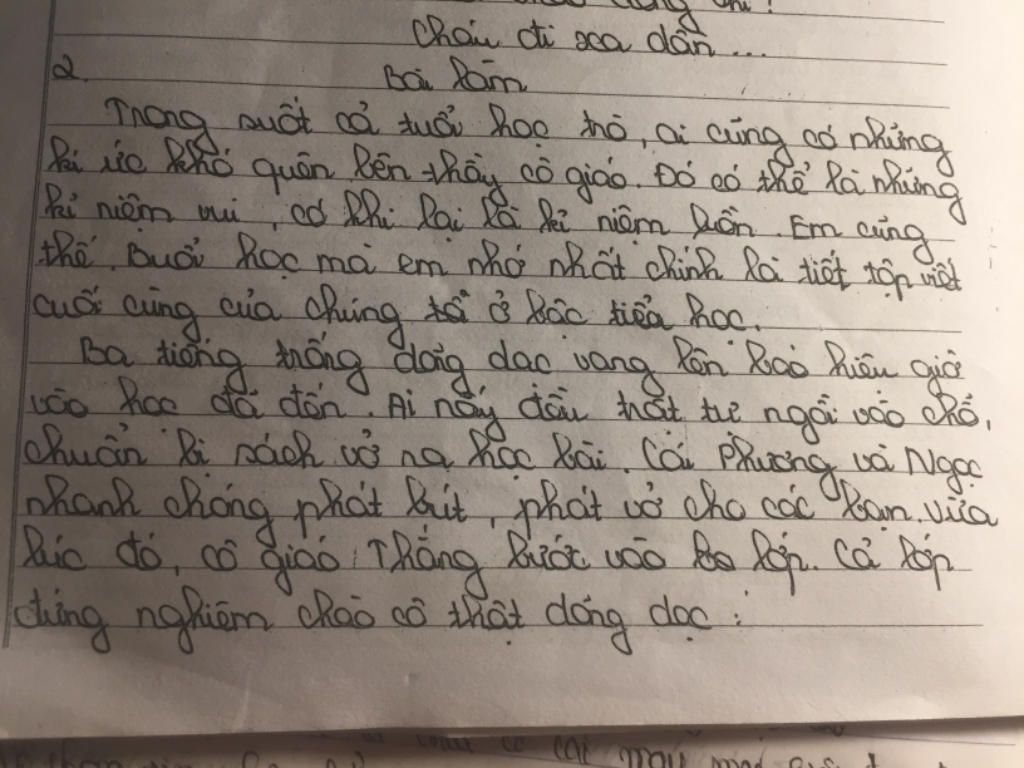 Cháu đi xa dần...
2.
Bài làm
Trong suốt cả tuổi học trò, ai cũng có những
kí ức khó quên bên thầy cô giáo. Đó có thể là những
kỉ niệm vui, có khi lại là kỉ niệm buồn. Em cũng
thế. Buổi học mà em nhớ nhất chính là tiết tập viết
cuối cùng của chúng tôi ở bậc tiểu học.
Ba tiếng trống dõng dạc vang lên báo hiệu giờ
vào học đã đến. Ai nấy đều trật tự ngồi vào chỗ,
chuẩn bị sách vở ra học bài. Cái Phương và Ngọc
nhanh chóng phát bút, phát vở cho các bạn. Vừa
lúc đó, cô giáo Thắng bước vào lớp. Cả lớp
đứng nghiêm chào cô thật dóng dạc :